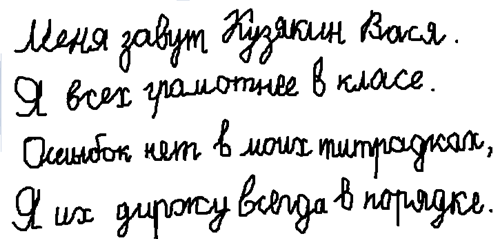 Меня завут Кузякин Вася.
Я всех грамотнее в класе.
Ошибок нет в моих титрадках,
Я их диржу всегда в порядке.